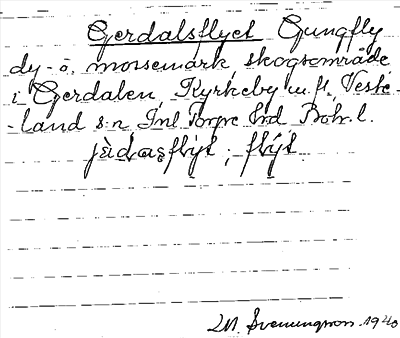 Gerdalsflyet Gungfly
dy- o. mossemark skogsområde
i Gerdalen Kyrkeby m. fl. Veste-
-land s:n Inl Torpe Hd Boh. l.
jàdasflýt ; flýt
M. Svenungsson. 1940